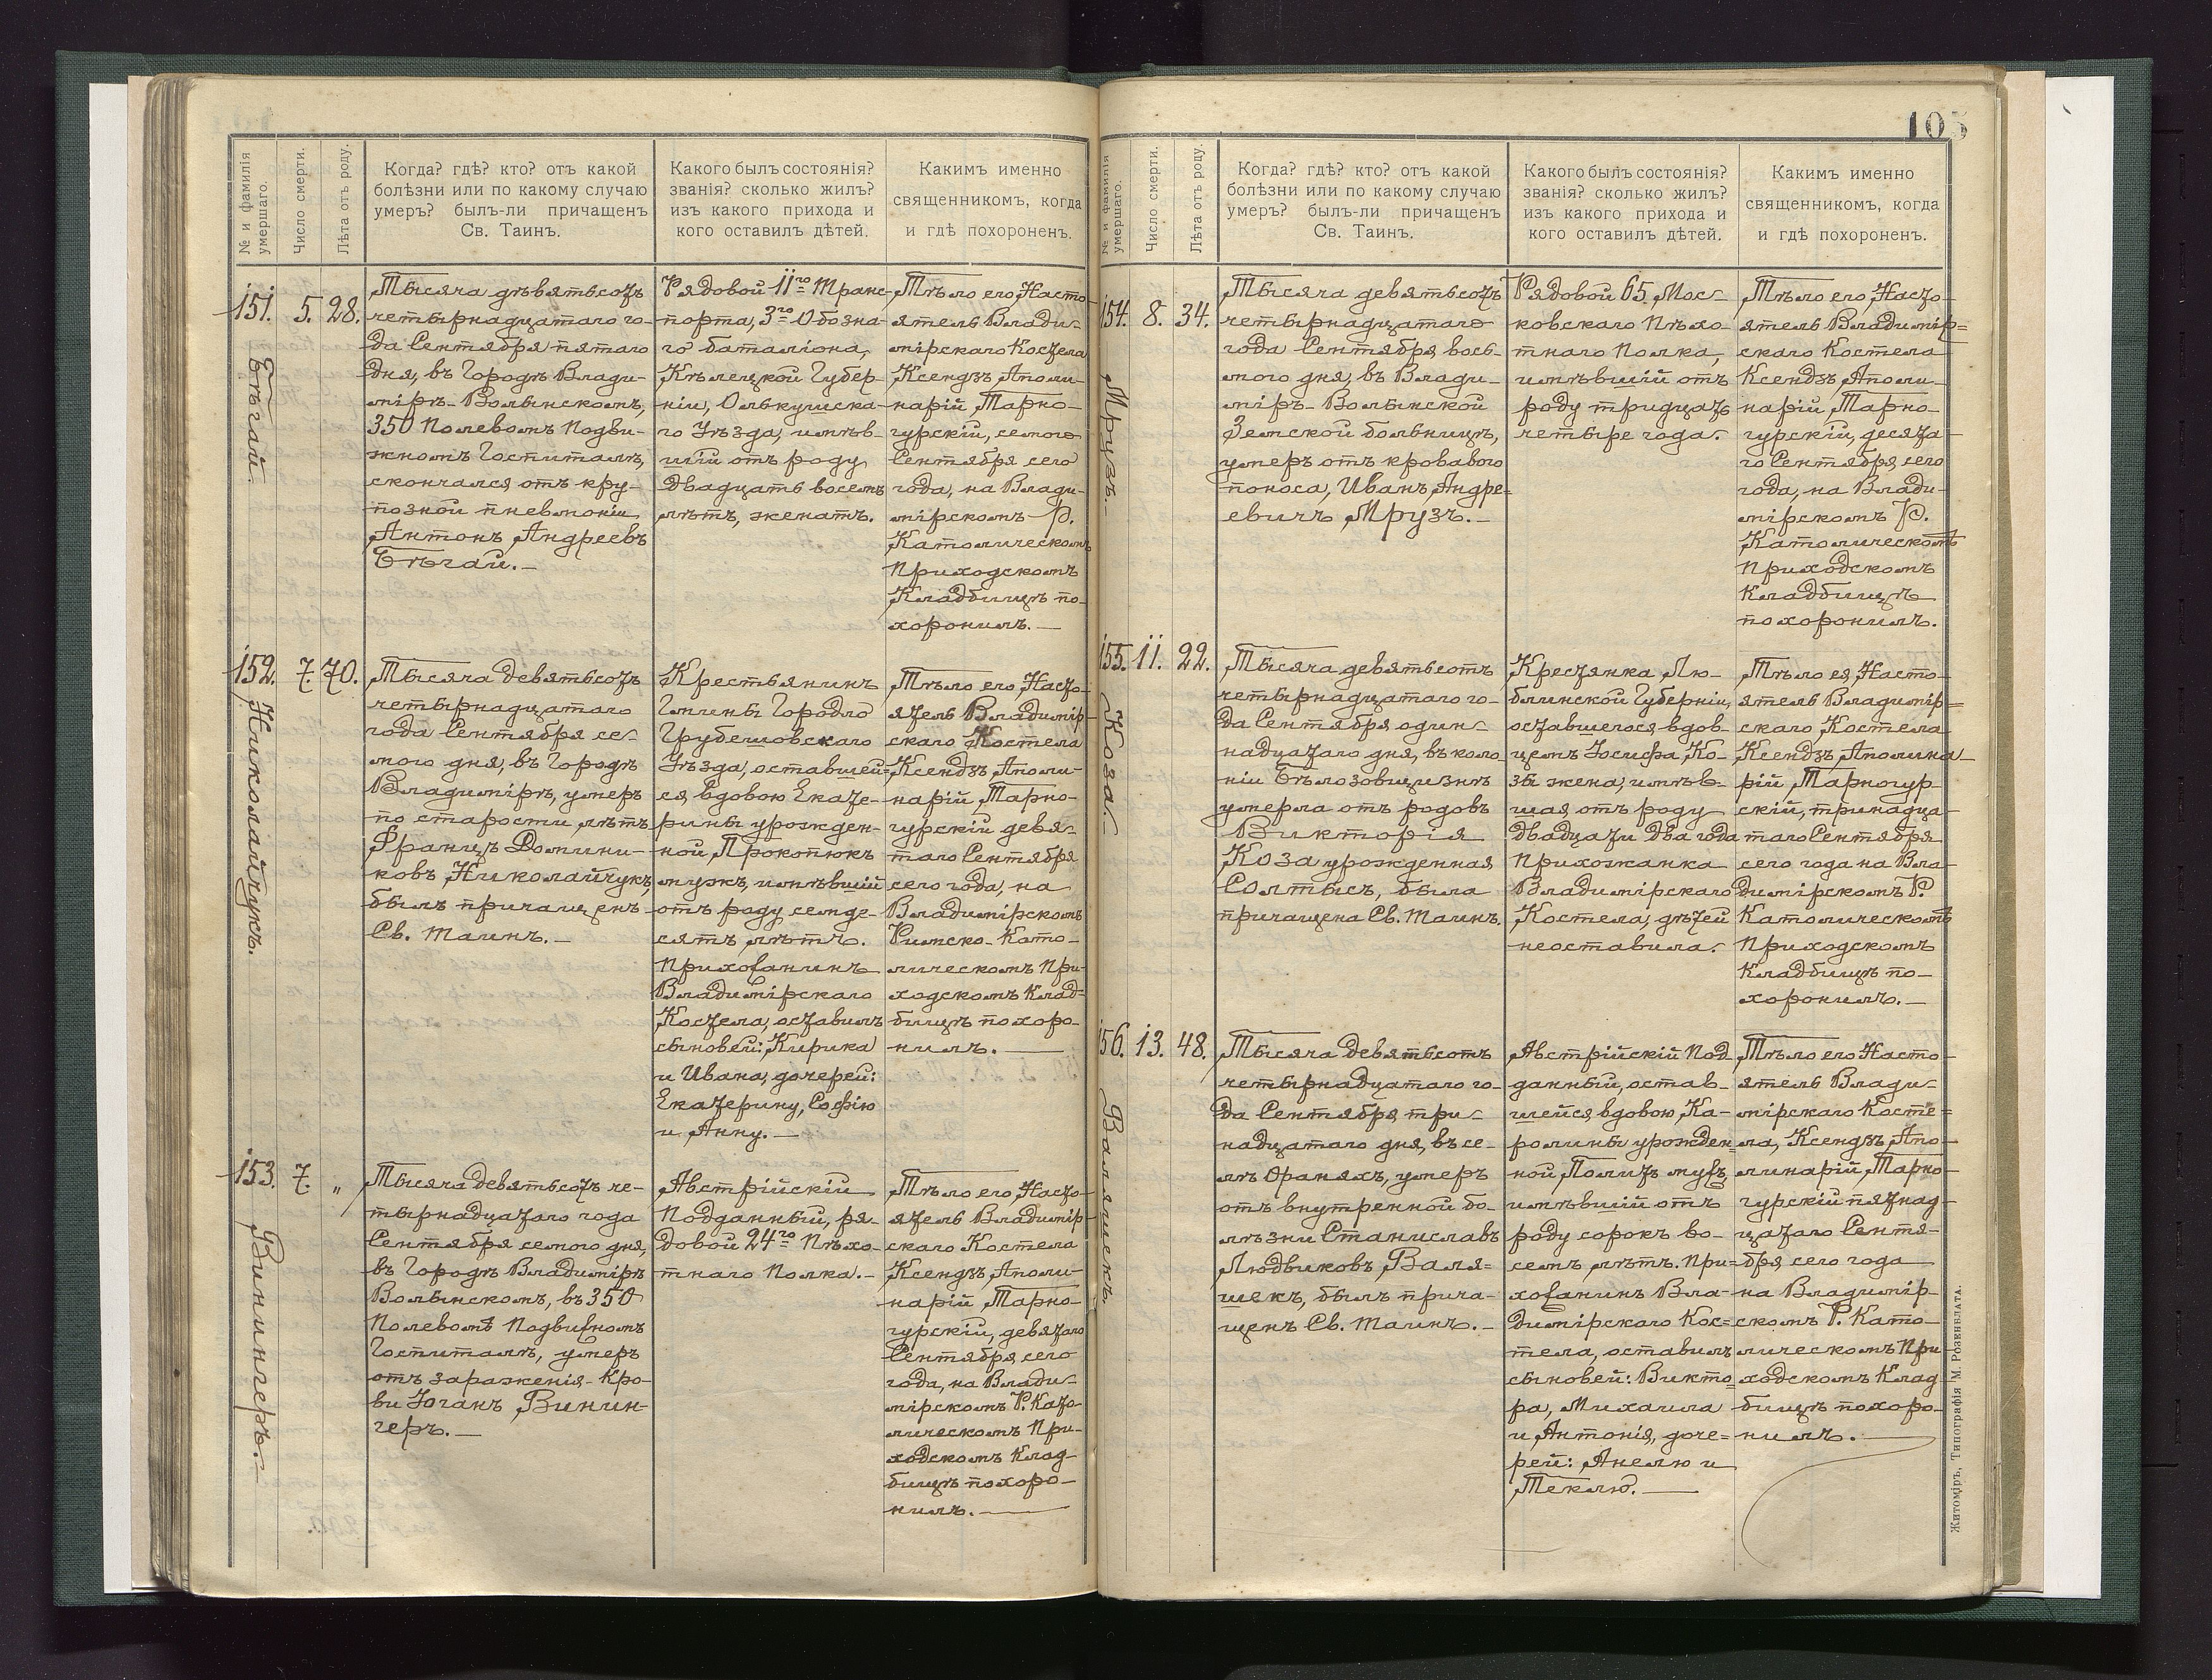 105
№ и фамилія умершаго.
Число смерти.
Лѣта отъ роду.
Когда? гдѣ? кто? отъ какой
болѣзни или по какому случаю
умеръ? былъ-ли причащенъ
Св. Таинъ.
Какого былъ состоянія?
званія? сколько жилъ?
изъ какого прихода и
кого оставилъ дѣтей.
Каким именно
священникомъ, когда
и гдѣ похороненъ.
151.
5.
28.
Бѣгай.
Тысяча девятьсотъ
четырнадцатаго го-
да Сентября пятаго
дня, въ Городѣ Влади-
мірѣ-Волынскомъ,
350 Полевомъ Подви-
жномъ Госпиталѣ,
скончался отъ кру-
позной пневмоніи
Антонъ Андреевъ
Бѣгай.—
Рядовой 11го Транс-
порта, 3го Обозна-
го баталіона,
Кѣлецкой Губер-
ніи, Олькушска-
го Уѣзда, имѣв-
шій отъ роду
двадцать восемь
лѣтъ, женатъ.
Тѣло его Насто-
ятель Влади-
мірскаго Костела
Ксендзъ Аполи-
нарій Тарно-
гурскій, семого
Сентября сего
года, на Влади-
мірскомъ Р.
Католическомъ
Приходскомъ
Кладбищѣ по-
хоронилъ.—
152.
7.
70.
Николайчукъ.
Тысяча девятьсотъ
четырнадцатаго
года Сентября се-
мого дня, въ Городѣ
Владимірѣ, умеръ
по старости лѣтъ
Францъ Домини-
ковъ Николайчукъ,
былъ причащенъ
Св. Таинъ.—
Крестьянинъ
Гмины Городло
Грубешовскаго
Уѣзда, оставшей-
ся вдовою Екате-
рины урожден-
ной Прокопюкъ
мужъ, имѣвшій
отъ роду семде-
сятъ лѣтъ.
Прихожанинъ
Владимірскаго
Костела, оставилъ
сыновей: Кирика
и Ивана, дочерей:
Екатерину, Софію
и Анну.—
Тѣло его Насто-
ятель Владимір-
скаго Костела
Ксендзъ Аполи-
нарій Тарно-
гурскій девя-
таго Сентября
сего года, на
Владимірскомъ
Римско-Като-
лическомъ При-
ходскомъ Клад-
бищѣ похоро-
нилъ.—
153.
7.
„
Винингеръ.—
Тысяча девятьсотъ че-
тырнадцатаго года
Сентября семого дня,
въ Городѣ Владимірѣ
Волынскомъ, въ 350
Полевомъ Подвижномъ
Госпиталѣ, умеръ
отъ зараженія Кро-
ви Іоганъ Винин-
геръ.—
Австрійскій
Подданный, ря-
довой 24го Пѣхо-
тнаго Полка.—
Тѣло его Насто-
ятель Владимір-
скаго Костела
Ксендзъ Аполи-
нарій Тарно-
гурскій, девятаго
Сентября сего
года, на Влади-
мірскомъ Р. Като-
лическомъ При-
ходскомъ Клад-
бищѣ похоро-
нилъ.—
№ и фамилія умершаго.
Число смерти.
Лѣта отъ роду.
Когда? гдѣ? кто? отъ какой
болѣзни или по какому случаю
умеръ? былъ-ли причащенъ
Св. Таинъ.
Какого былъ состоянія?
званія? сколько жилъ?
изъ какого прихода и
кого оставилъ дѣтей.
Какимъ именно
священникомъ, когда
и гдѣ похороненъ.
154.
8.
34.
Мрузъ.—
Тысяча девятьсотъ
четырнадцатаго
года Сентября вось-
мого дня, въ Влади-
мірѣ-Волынской
Земской больницѣ,
умеръ отъ кроваваго
поноса, Иванъ Андре-
евичъ Мрузъ.—
Рядовой 65 Мос-
ковскаго Пѣхо-
тнаго Полка,
имѣвшій отъ
роду тридцать
четыре года.
Тѣло его, Насто-
ятель Владимір-
скаго Костела
Ксендзъ Аполи-
нарій Тарно-
гурскій, десята-
го Сентября сего
года, на Влади-
мірскомъ Р.
Католическомъ
Приходскомъ
Кладбищѣ
похоронилъ.
155.
11.
22.
Коза.—
Тысяча девятьсотъ
четырнадцатаго го-
да Сентября один-
надцатаго дня, въ коло-
ніи Бѣлозовщизнѣ
умерла отъ родовъ
Викторія
Коза урожденная
Солтысъ, была
причащена Св. Таинъ.
Крестянка Лю-
блинской Губерніи,
оставшегося вдов-
цемъ Іосифа Ко-
зы жена, имѣв-
шая отъ роду
двадцати два года
Прихожанка
Владимірскаго
Костела, дѣтей
неоставила.
Тѣло ея, Насто-
ятель Владимір-
скаго Костела
Ксендзъ Аполина-
рій Тарногур-
скій, тринадца-
таго Сентября
сего года на Вла-
димірскомъ Р.
Католическомъ
Приходскомъ
Кладбищѣ по-
хоронилъ.—
156.
13.
48.
Валяшекъ.
Тысяча девятьсотъ
четырнадцатаго го-
да Сентября три-
надцатаго дня, въ се-
лѣ Ораняхъ, умеръ
отъ внутренной бо-
лѣзни Станиславъ
Людвиковъ Валя-
шекъ, былъ прича-
щенъ Св. Таинъ.—
Австрійскій Под-
данный, остав-
шейся вдовою, Ка-
ролины урожден-
ной Политъ мужъ,
имѣвшій отъ
роду сорокъ во-
семъ лѣтъ. При-
хожанинъ Вла-
димірскаго Кос-
тела, оставилъ
сыновей: Викто-
ра, Михаила
и Антонія, доче-
рей: Анелю и
Теклю.—
Тѣло его Насто-
ятель Влади-
мірскаго Косте-
ла, Ксендзъ Апо-
линарій Тарно-
гурскій пятнад-
цатаго Сентя-
бря сего года
на Владимір-
скомъ Р. Като-
лическомъ При
ходскомъ Клад
бищѣ похоро-
нилъ.—
Житомiръ, Типографія М. Розенблата.